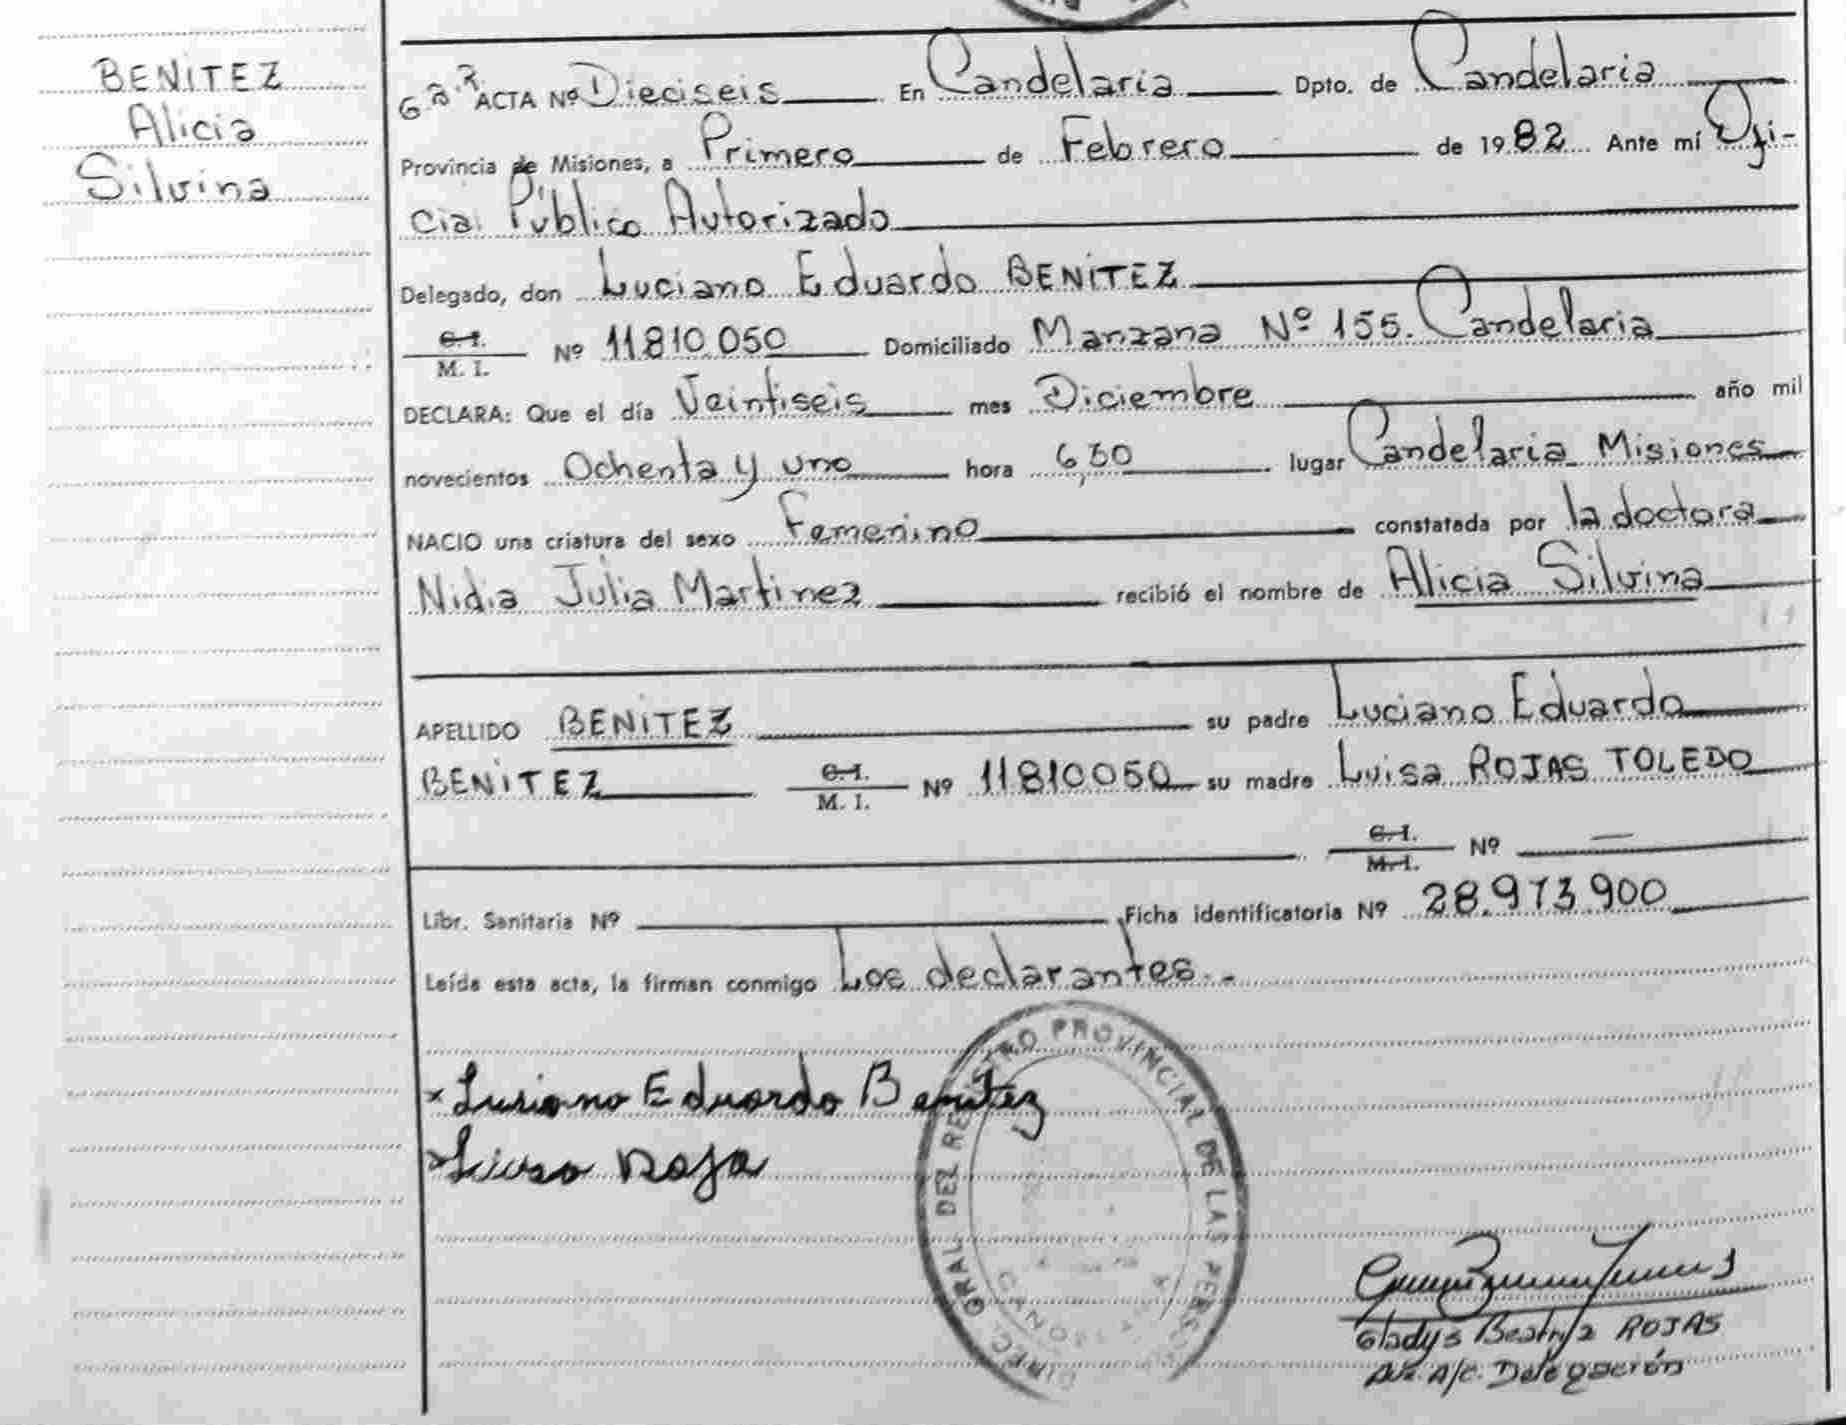 BENITEZ
Alicia
Silvina
ACTA Nº Dieciseis En Candelaria Dpto. de Candelaria
Provincia de Misiones, a Primero de Febrero de 1982 Ante mí Ofi-
cial Público Autorizado
Delegado, don Luciano Eduardo BENITEZ
C.I.
M. I. Nº 11810.050 Domiciliado Manzana Nº 155. Candelaria
DECLARA: Que el día Veintiseis mes Diciembre año mil
novecientos Ochenta y uno hora 6,30 lugar Candelaria Misiones
NACIO una criatura del sexo Femenino constatada por la doctora
Nidia Julia Martinez recibió el nombre de Alicia Silvina
APELLIDO BENITEZ su padre Luciano Eduardo
BENITEZ C.I. Nº 11810050 su madre Luisa ROJAS TOLEDO
M. I.
C.I. Nº —
M.I.
Libr. Sanitaria Nº Ficha identificatoria Nº 28.973.900
Leída esta acta, la firman conmigo Los declarantes.-
x Lusiano Eduardo Benitez
x Luisa Roja
DIREC. GRAL. DEL REGISTRO PROVINCIAL DE LAS PERSO
Gladys Beatriz ROJAS
Aux. A/C. Delegación